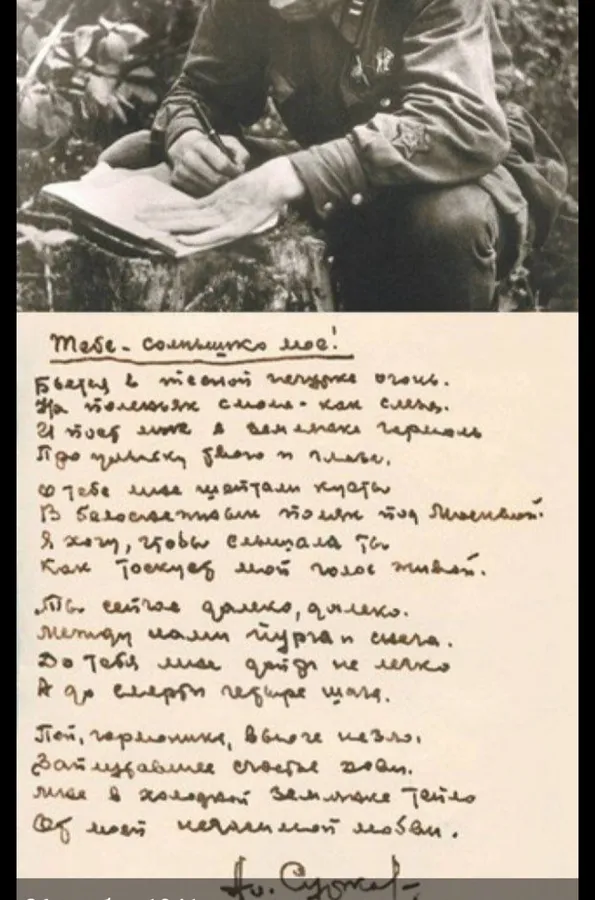 Тебе - солнышко мое!
Бьется в тесной печурке огонь.
На поленьях смола - как слеза.
И поет мне в землянке гармонь
Про улыбку твою и глаза.
О тебе мне шептали кусты
В белоснежных полях под Москвой.
Я хочу, чтобы слышала ты
Как тоскует мой голос живой.
Ты сейчас далеко, далеко.
Между нами пурга и снега.
До тебя мне дойти не легко
А до смерти четыре шага.
Пой, гармоника, вьюге назло.
Заплутавшее счастье зови.
Мне в холодной землянке тепло
От моей негасимой любви.
Ал. Сурков